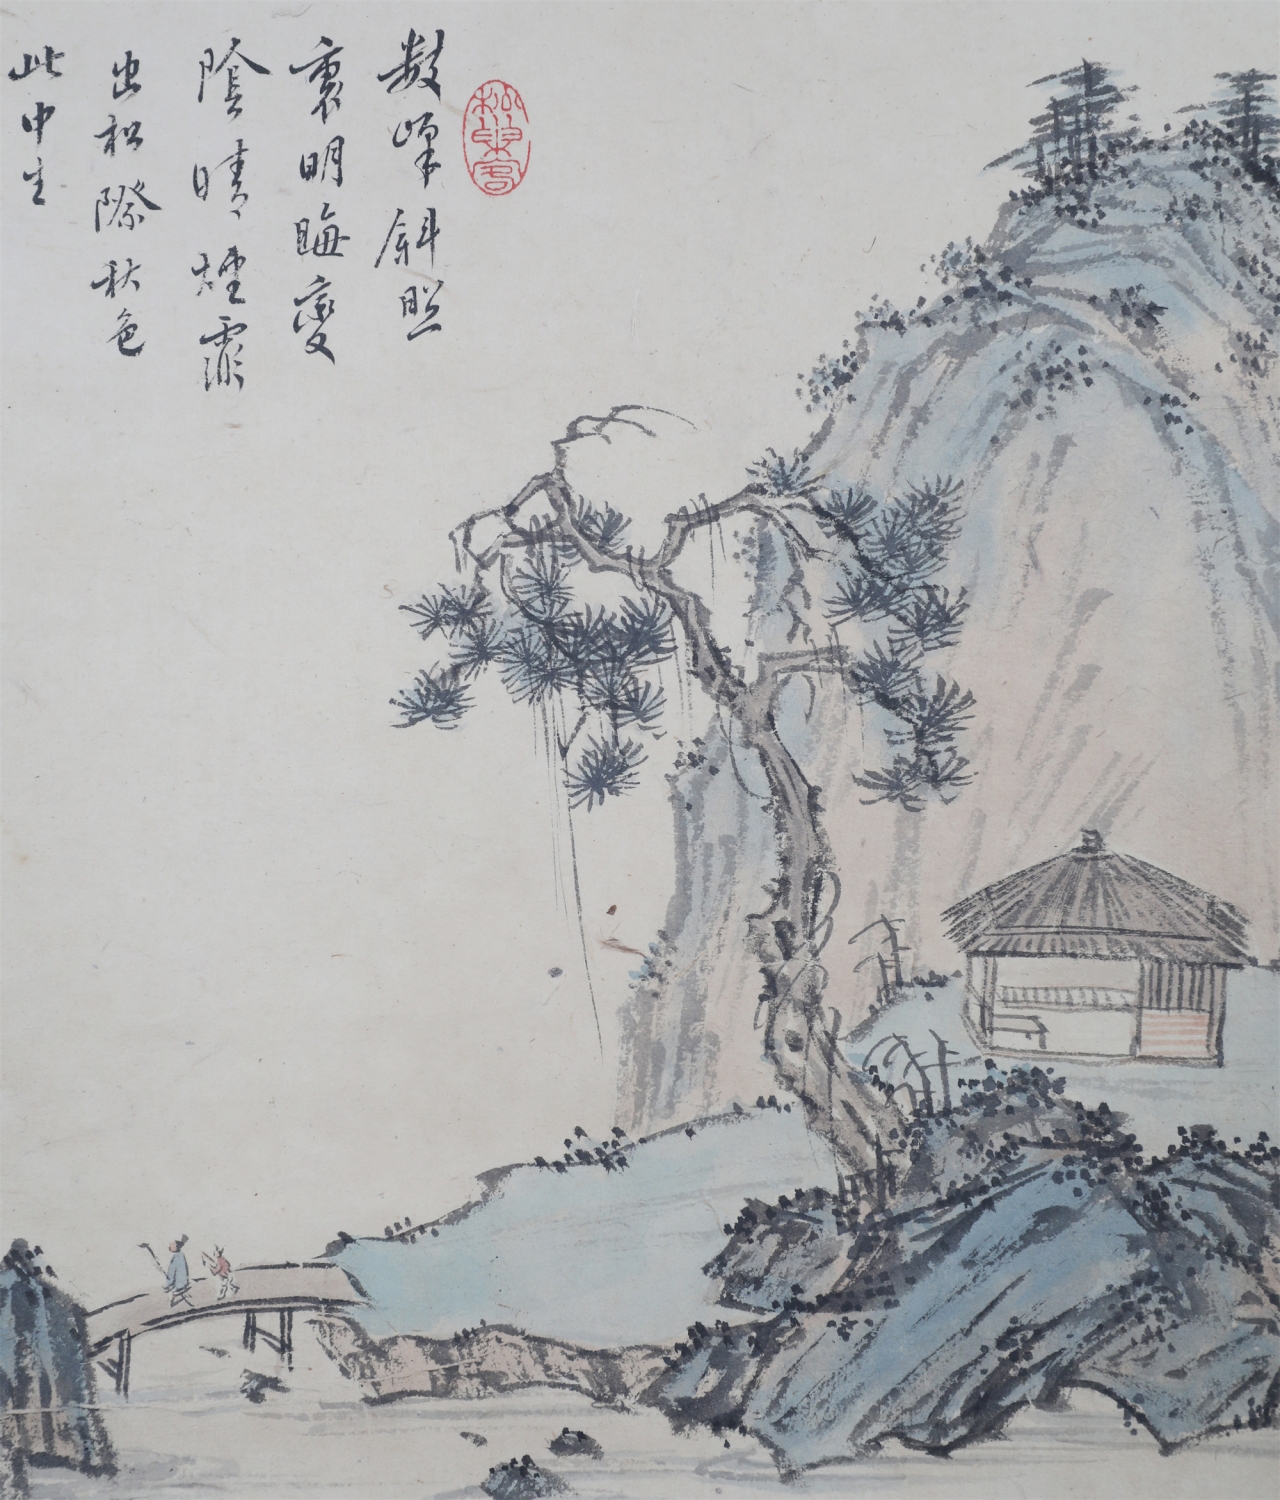 數峰斜照
裏明晦變
陰晴煙霏
出松際秋色
此中生